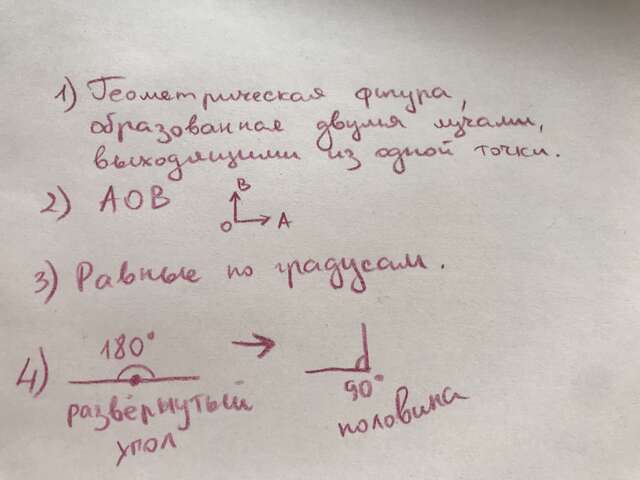 1) Геометрическая фигура,
образованная двумя лучами,
выходящими из одной точки.
2) АОВ
В
О
А
3) Равные по градусам.
4) 180° → 90°
развёрнутый половина
угол